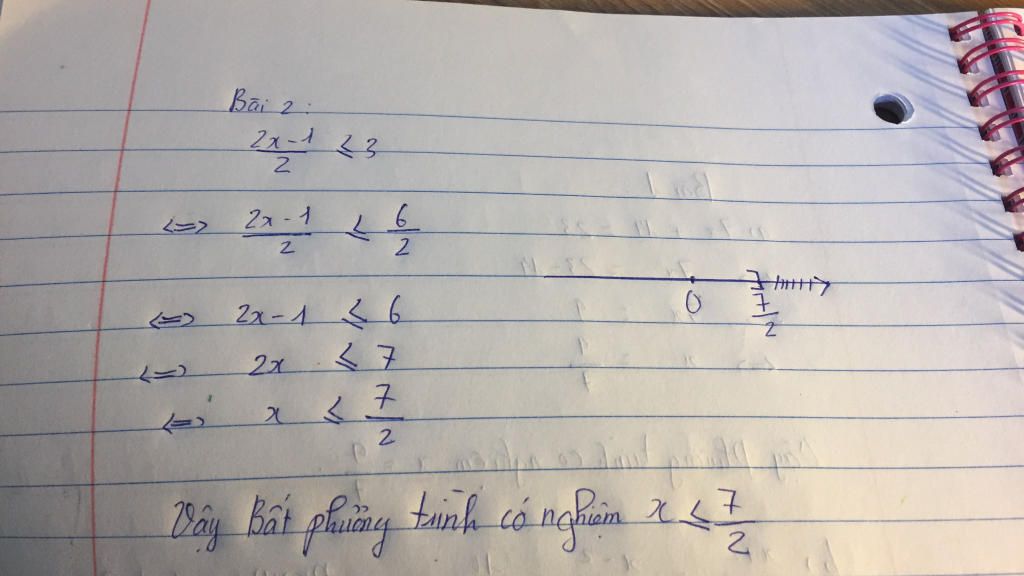 Bài 2:
2x-1/2 ≤ 3
<=> 2x-1/2 ≤ 6/2
0 ] 7/2
<=> 2x-1 ≤ 6
<=> 2x ≤ 7
<=> x ≤ 7/2
Vậy Bất phương trình có nghiệm x ≤ 7/2